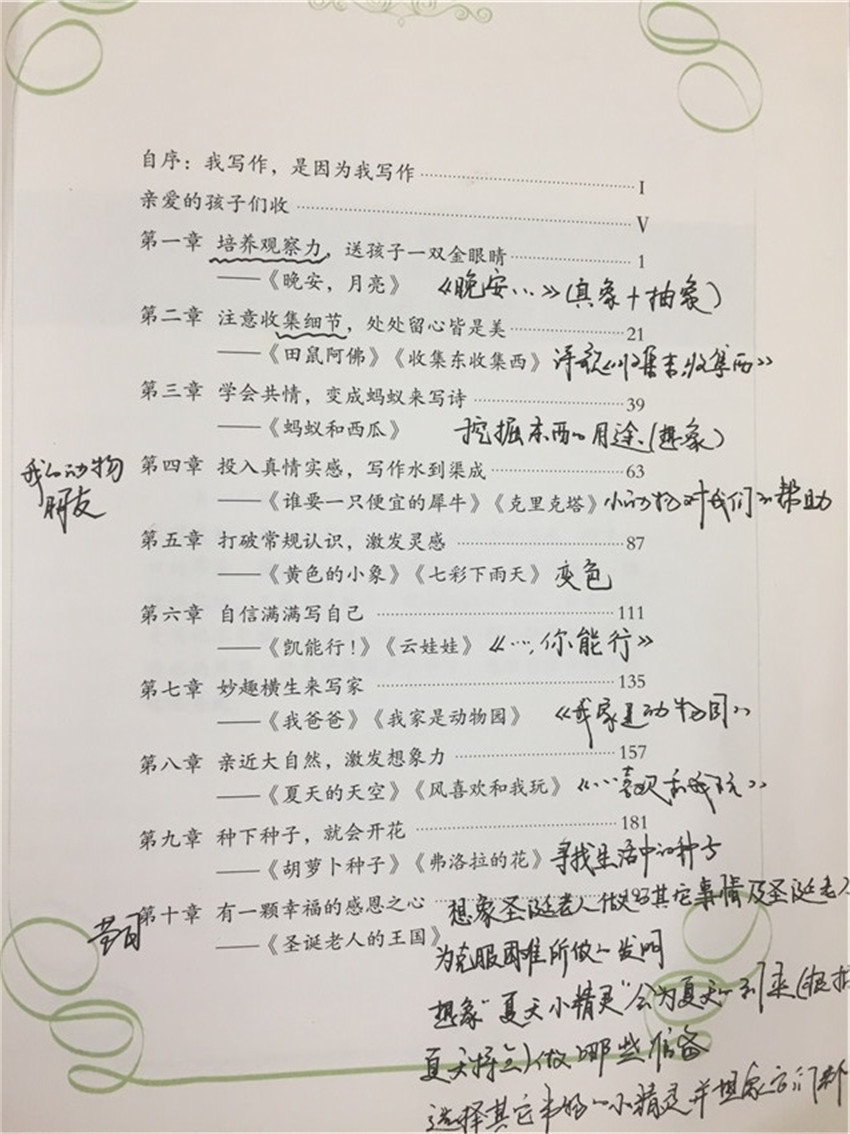 自序：我写作，是因为我写作……I
亲爱的孩子们收……V
第一章 培养观察力，送孩子一双金眼睛……1
——《晚安，月亮》 《晚安…》(具象+抽象)
第二章 注意收集细节，处处留心皆是美……21
——《田鼠阿佛》《收集东收集西》 诗歌《收集东收集西》
第三章 学会共情，变成蚂蚁来写诗……39
——《蚂蚁和西瓜》 挖掘东西的用途(想象)
第四章 投入真情实感，写作水到渠成……63
我的动物朋友
——《谁要一只便宜的犀牛》《克里克塔》 小动物对我们的帮助
第五章 打破常规认识，激发灵感……87
——《黄色的小象》《七彩下雨天》 变色
第六章 自信满满写自己……111
——《凯能行！》《云娃娃》 《…，你能行》
第七章 妙趣横生来写家……135
——《我爸爸》《我家是动物园》 《我家是动物园》
第八章 亲近大自然，激发想象力……157
——《夏天的天空》《风喜欢和我玩》 《…喜欢和我玩》
第九章 种下种子，就会开花……181
——《胡萝卜种子》《弗洛拉的花》 寻找生活中的种子
第十章 有一颗幸福的感恩之心 想象圣诞老人做的其它事情及圣诞老
——《圣诞老人的王国》
为克服困难所做的发明
想象"夏天小精灵"会为夏天的到来
夏天特点)做哪些准备
选择其它的小精灵并想象它们